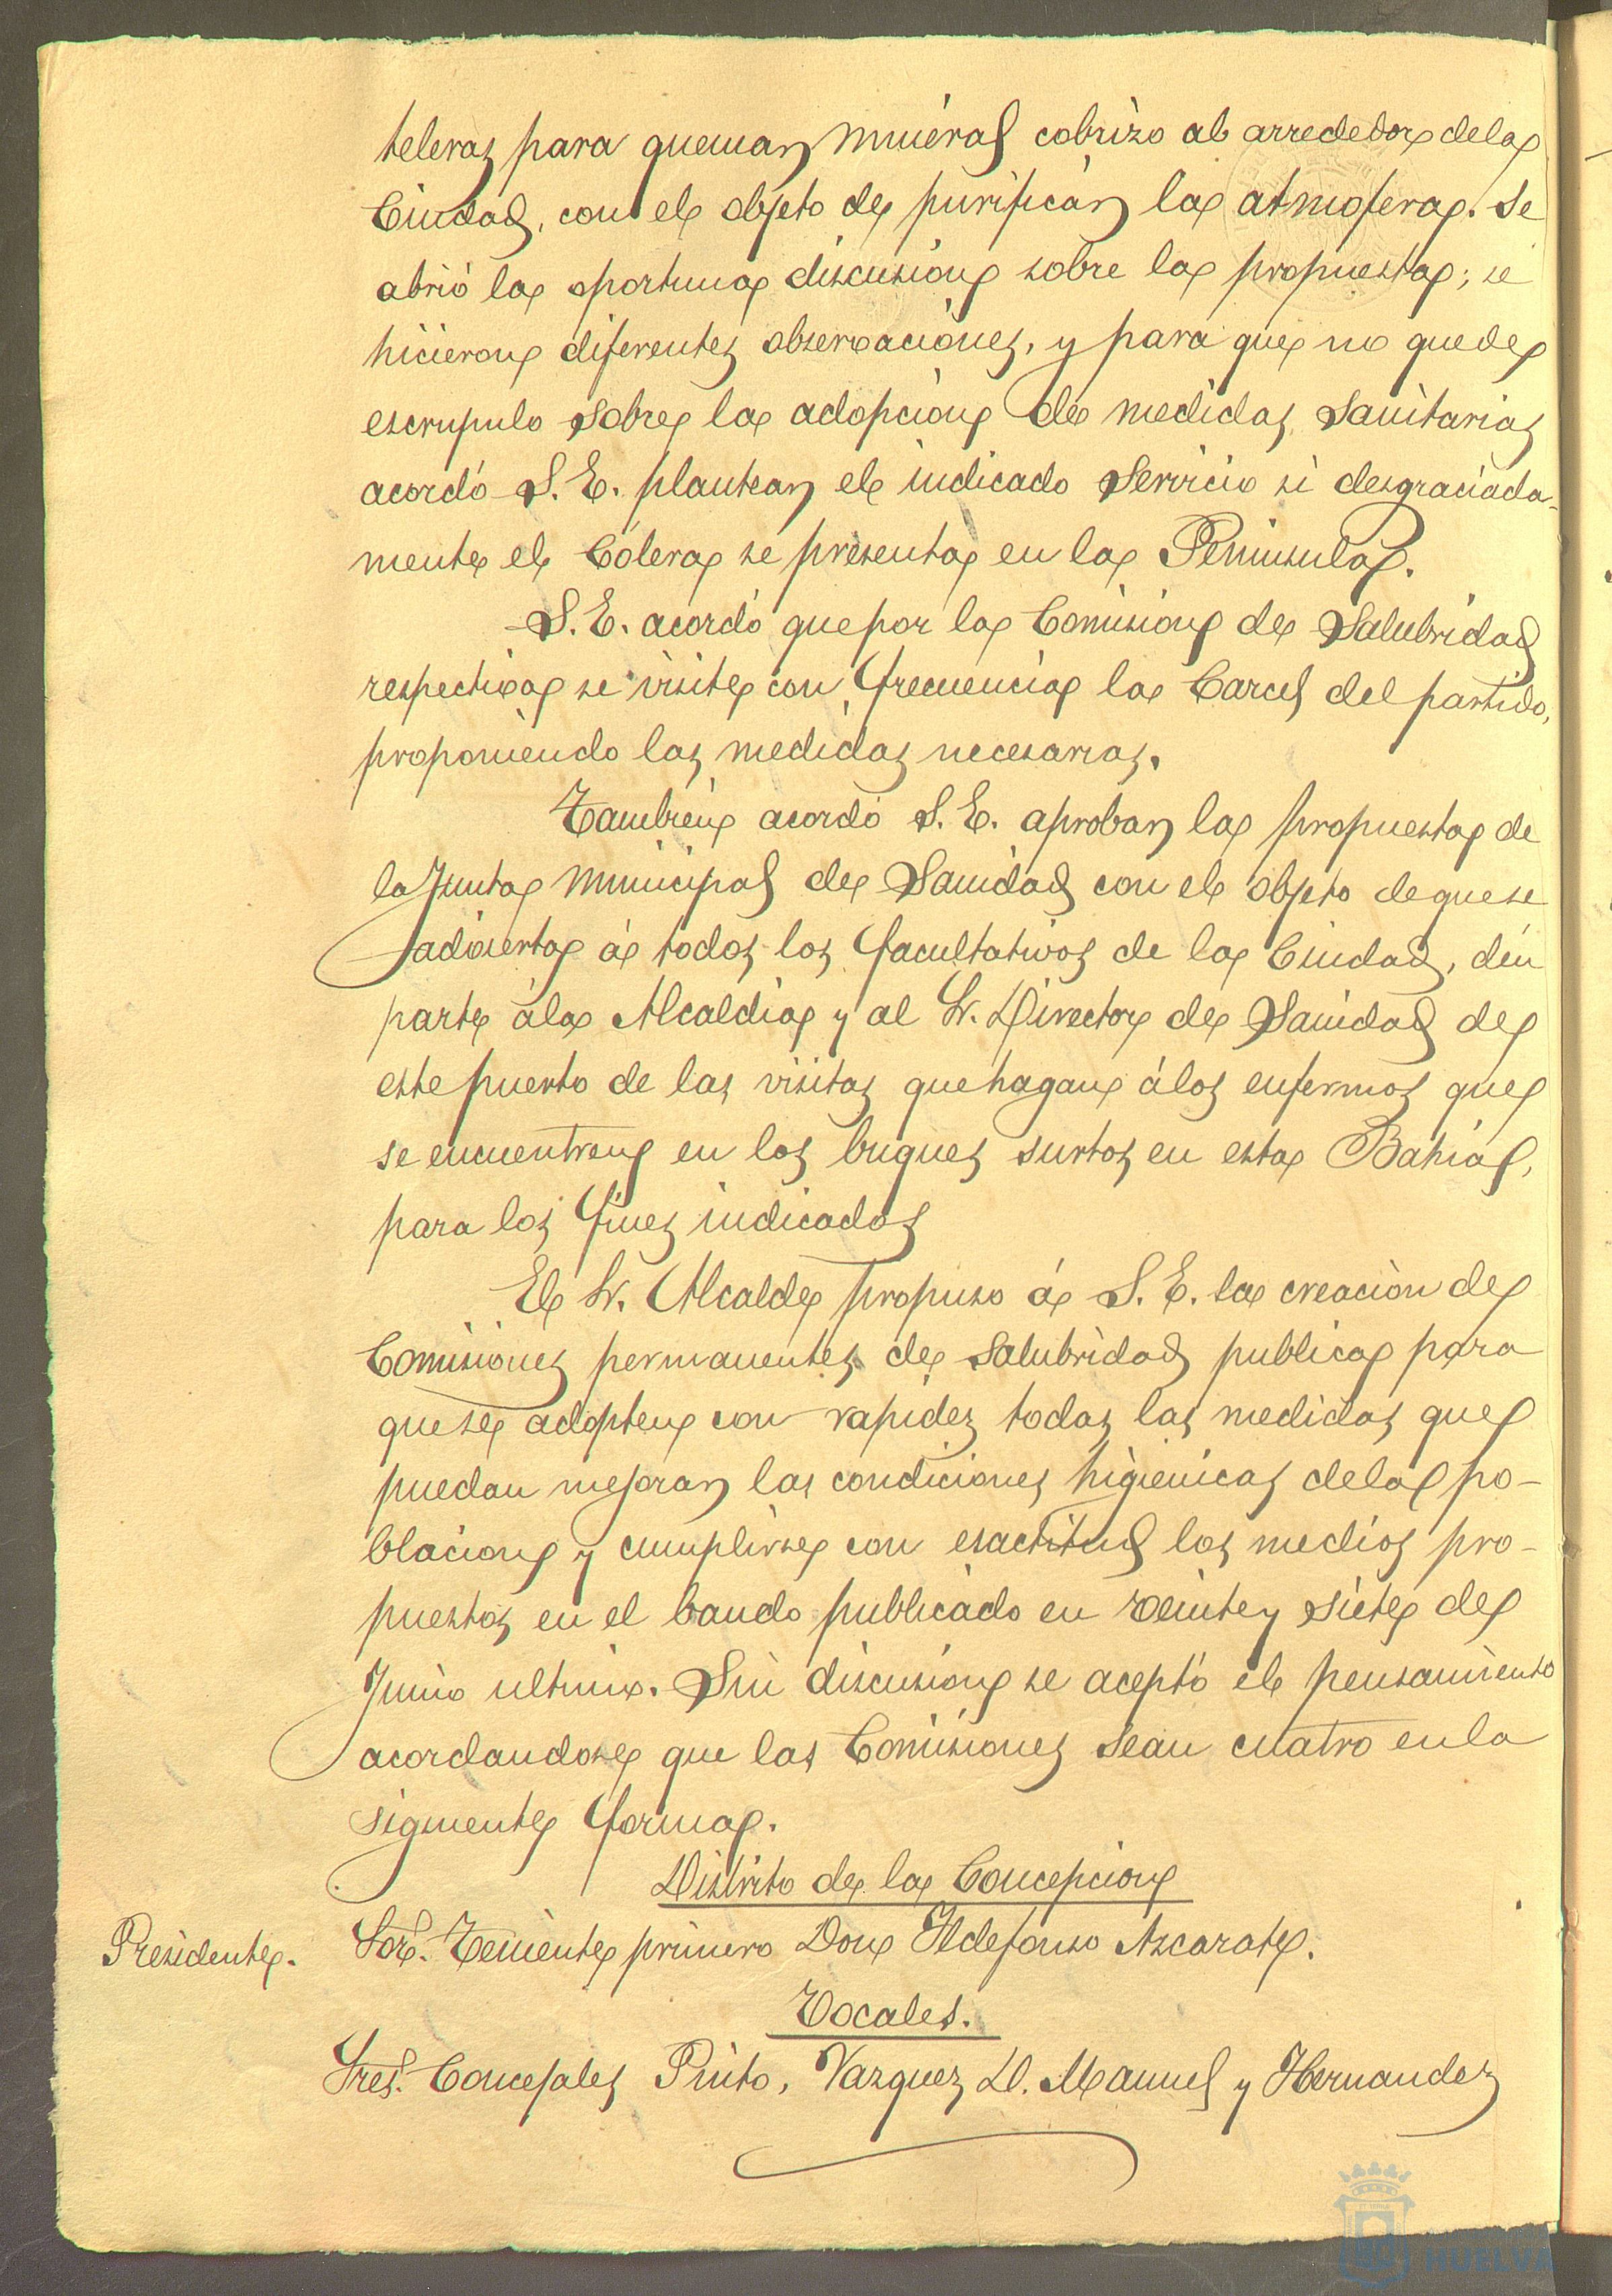 teleras para quemar mineral cobrizo al arrededor de la
Ciudad, con el objeto de purificar la atmofera. Se
abrió la oportuna discusion sobre la propuesta; se
hicieron diferentes observaciones, y para que no quede
escrupulo sobre la adopcion de medidas Sanitarias
acordó S. E. plantear el indicado Servicio si desgraciada-
mente el Cólera se presenta en la Peninsula.
S. E. acordó que por la Comision de Salubridad
respectiva se visite con frecuencia la Carcel del partido,
proponiendo las medidas necesarias.
Tambien acordó S. E. aprobar la propuesta de
la Junta Municipal de Sanidad con el objeto de que se
advierta á todos los facultativos de la Ciudad, dén
parte á la Alcaldia y al Sr. Director de Sanidad de
este puerto de las visitas que hagan á los enfermos que
se encuentren en los buques surtos en esta Bahia,
para los fines indicados
El Sr. Alcalde propuso á S. E. la creación de
Comisiones permanentes de Salubridad publica para
que se adopten con rapidez todas las medidas que
puedan mejorar las condiciones higienicas de la po-
blacion y cumplirse con esactitud los medios pro-
puestos en el bando publicado en veinte y siete de
Junio ultimo. Sin discusion se aceptó el pensamiento
acordandose que las Comisiones sean cuatro en la
siguiente forma.
Distrito de la Concepcion
Presidente. Sor. Teniente primero Don Ildefonso Azcarate.
Vocales.
Sres. Concejales Pinto, Vazquez D. Manuel y Hernandez
HUELVA